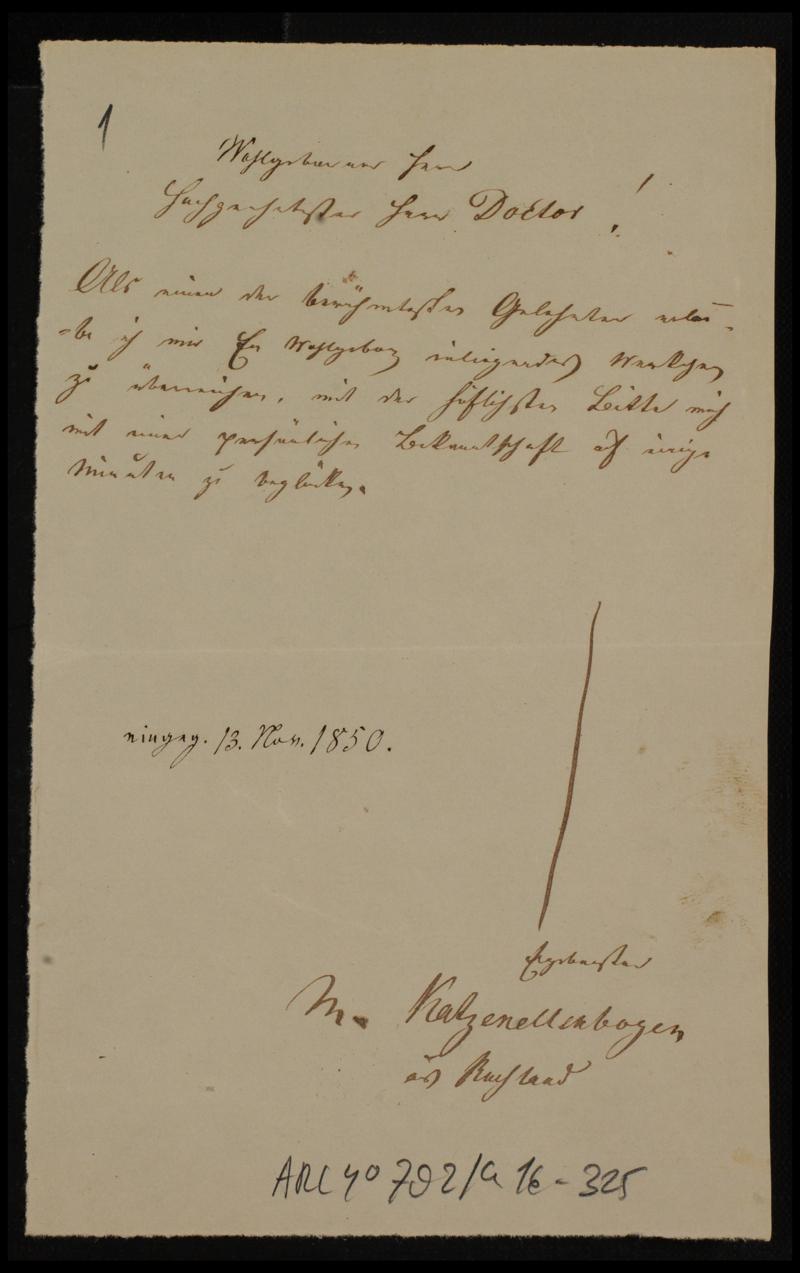 1
Wohlgeborner Herr
Hochgeehrtester Herr Doctor!
Als einen der berühmtesten Gelehrten erlau-
-be ich mir Ew Wohlgeborn inliegendes Werkchen
zu überreichen, mit der höflichsten Bitte mich
mit einer persönlichen Bekanntschaft auf einige
Minuten zu beglücken.
eingeg. 13. Nov. 1850.
Ergebenster
M. Katzenellenbogen
aus Russland
ARC 4o 792/G 16-325